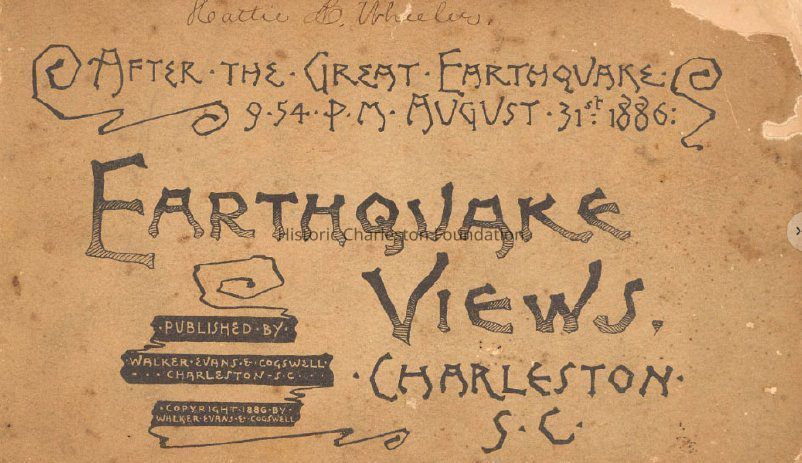 Hattie B. Wheeler.
AFTER · THE · GREAT · EARTHQUAKE ·
9·54· P.M. AUGUST · 31st 1886:
EARTHQUAKE
Historic Charleston Foundation
VIEWS.
· PUBLISHED · BY ·
WALKER · EVANS · & · COGSWELL ·
· CHARLESTON · S · C ·
· COPYRIGHT · 1886 · BY ·
WALKER · EVANS · & · COGSWELL
· CHARLESTON ·
S · C ·